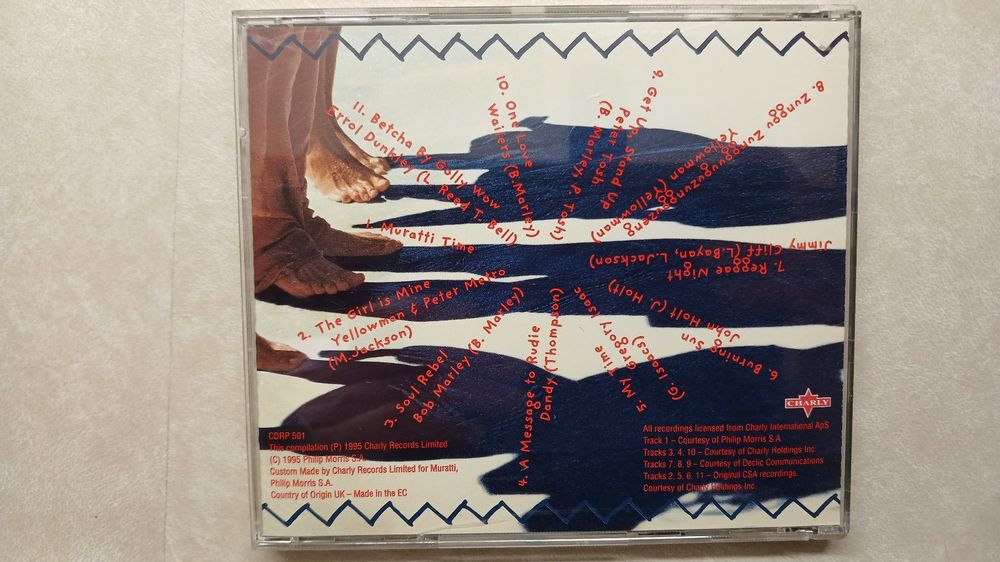 1. Muratti Time
2. The Girl is Mine
Yellowman & Peter Metro
(M.Jackson)
3. Soul Rebel
Bob Marley (B. Marley)
4. A Message to Rudie
Dandy (Thompson)
5. My Time
Gregory Isaac
(G. Isaacs)
6. Burning Sun
John Holt (J. Holt)
7. Reggae Night
Jimmy Cliff (L.Bayan, L.Jackson)
8. Zunggu Zungguguzungguzeng
Yellowman (Yellowman)
9. Get Up, Stand Up
Peter Tosh
(B. Marley, P. Tosh)
10. One Love
Wailers (B.Marley)
11. Betcha By Golly Wow
Errol Dunkley (L. Reed T. Bell)
CHARLY
CDRP 501
This compilation (P) 1995 Charly Records Limited
(C) 1995 Philip Morris S.A.
Custom Made by Charly Records Limited for Muratti,
Philip Morris S.A.
Country of Origin UK – Made in the EC
All recordings licensed from Charly International ApS
Track 1 – Courtesy of Philip Morris S.A.
Tracks 3, 4, 10 – Courtesy of Charly Holdings Inc
Tracks 7, 8, 9 – Courtesy of Declic Communications
Tracks 2, 5, 6, 11 – Original CSA recordings.
Courtesy of Charly Holdings Inc.